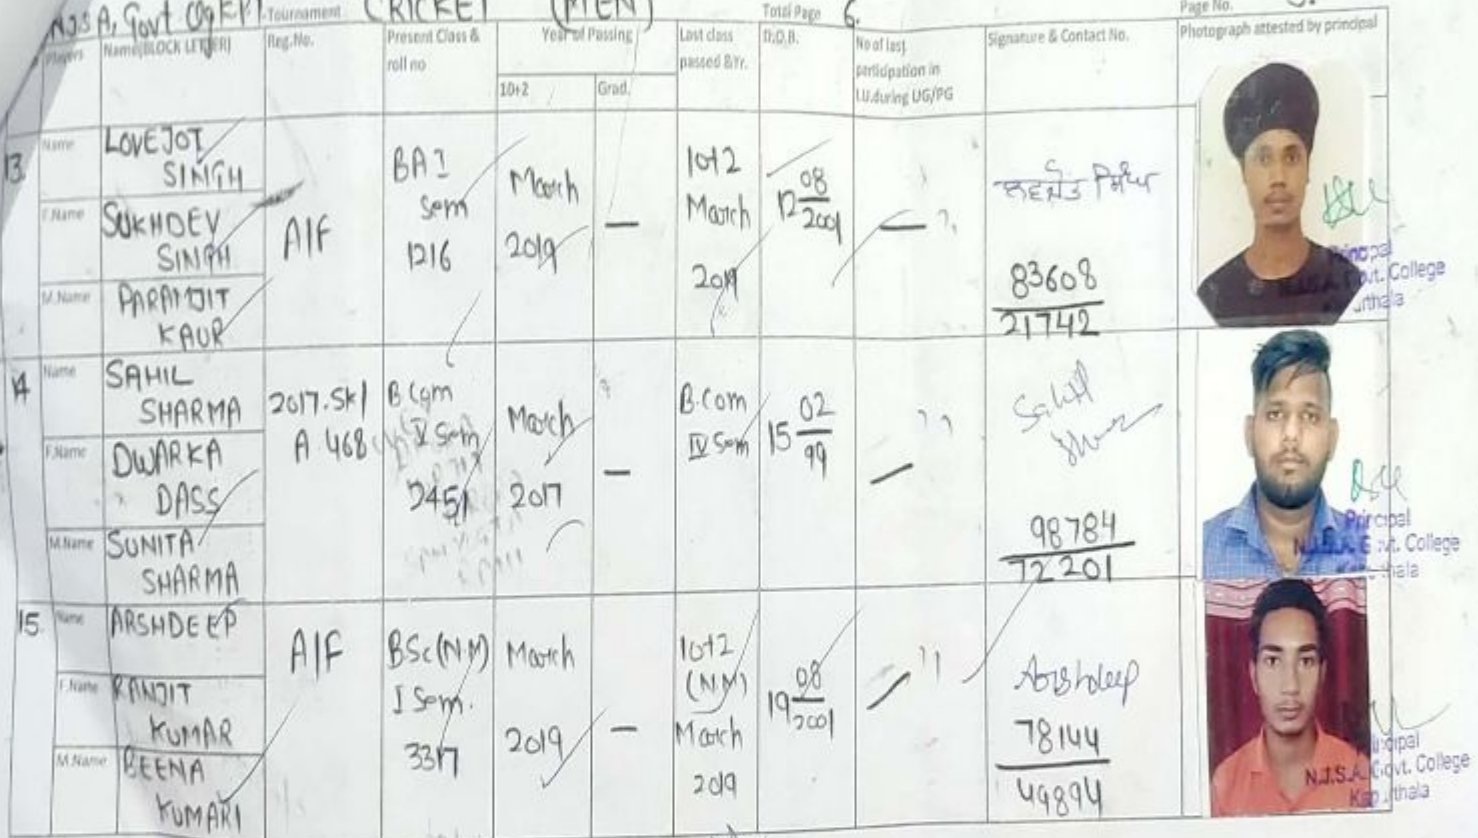 N.J.S.A, Govt Clg KPT Tournament CRICKET (MEN) Total Page 6. Page No.
Players Name(BLOCK LETTER) Reg.No. Present Class & roll no Year of Passing 10+2 Grad. Last class passed &Yr. D.O.B. No of last participation in I.U.during UG/PG Signature & Contact No. Photograph attested by principal
13. Name LOVEJOT SINGH
F.Name SUKHDEV SINGH
M.Name PARAMJIT KAUR
A/F
BA I Sem 1216
March 2019
—
10+2 March 2019
12 08/2001
—
ਲਵਜੋਤ ਸਿੰਘ
83608
21742
Principal
N.J.S.A. Govt. College
14 Name SAHIL SHARMA
F.Name DWARKA DASS
M.Name SUNITA SHARMA
2017.SK/ A 468
B Com V Sem 2451
March 2017
—
B.Com IV Sem
15 02/99
—
Sahil
98784
72201
Principal
N.J.S.A. Govt. College
15. Name ARSHDEEP
F.Name RANJIT KUMAR
M.Name BEENA KUMARI
A/F
BSc (N.M) I Sem. 3317
March 2019
—
10+2 (N.M) March 2019
19 08/2001
—
Arshdeep
78144
49894
Principal
N.J.S.A. Govt. College
Kapurthala